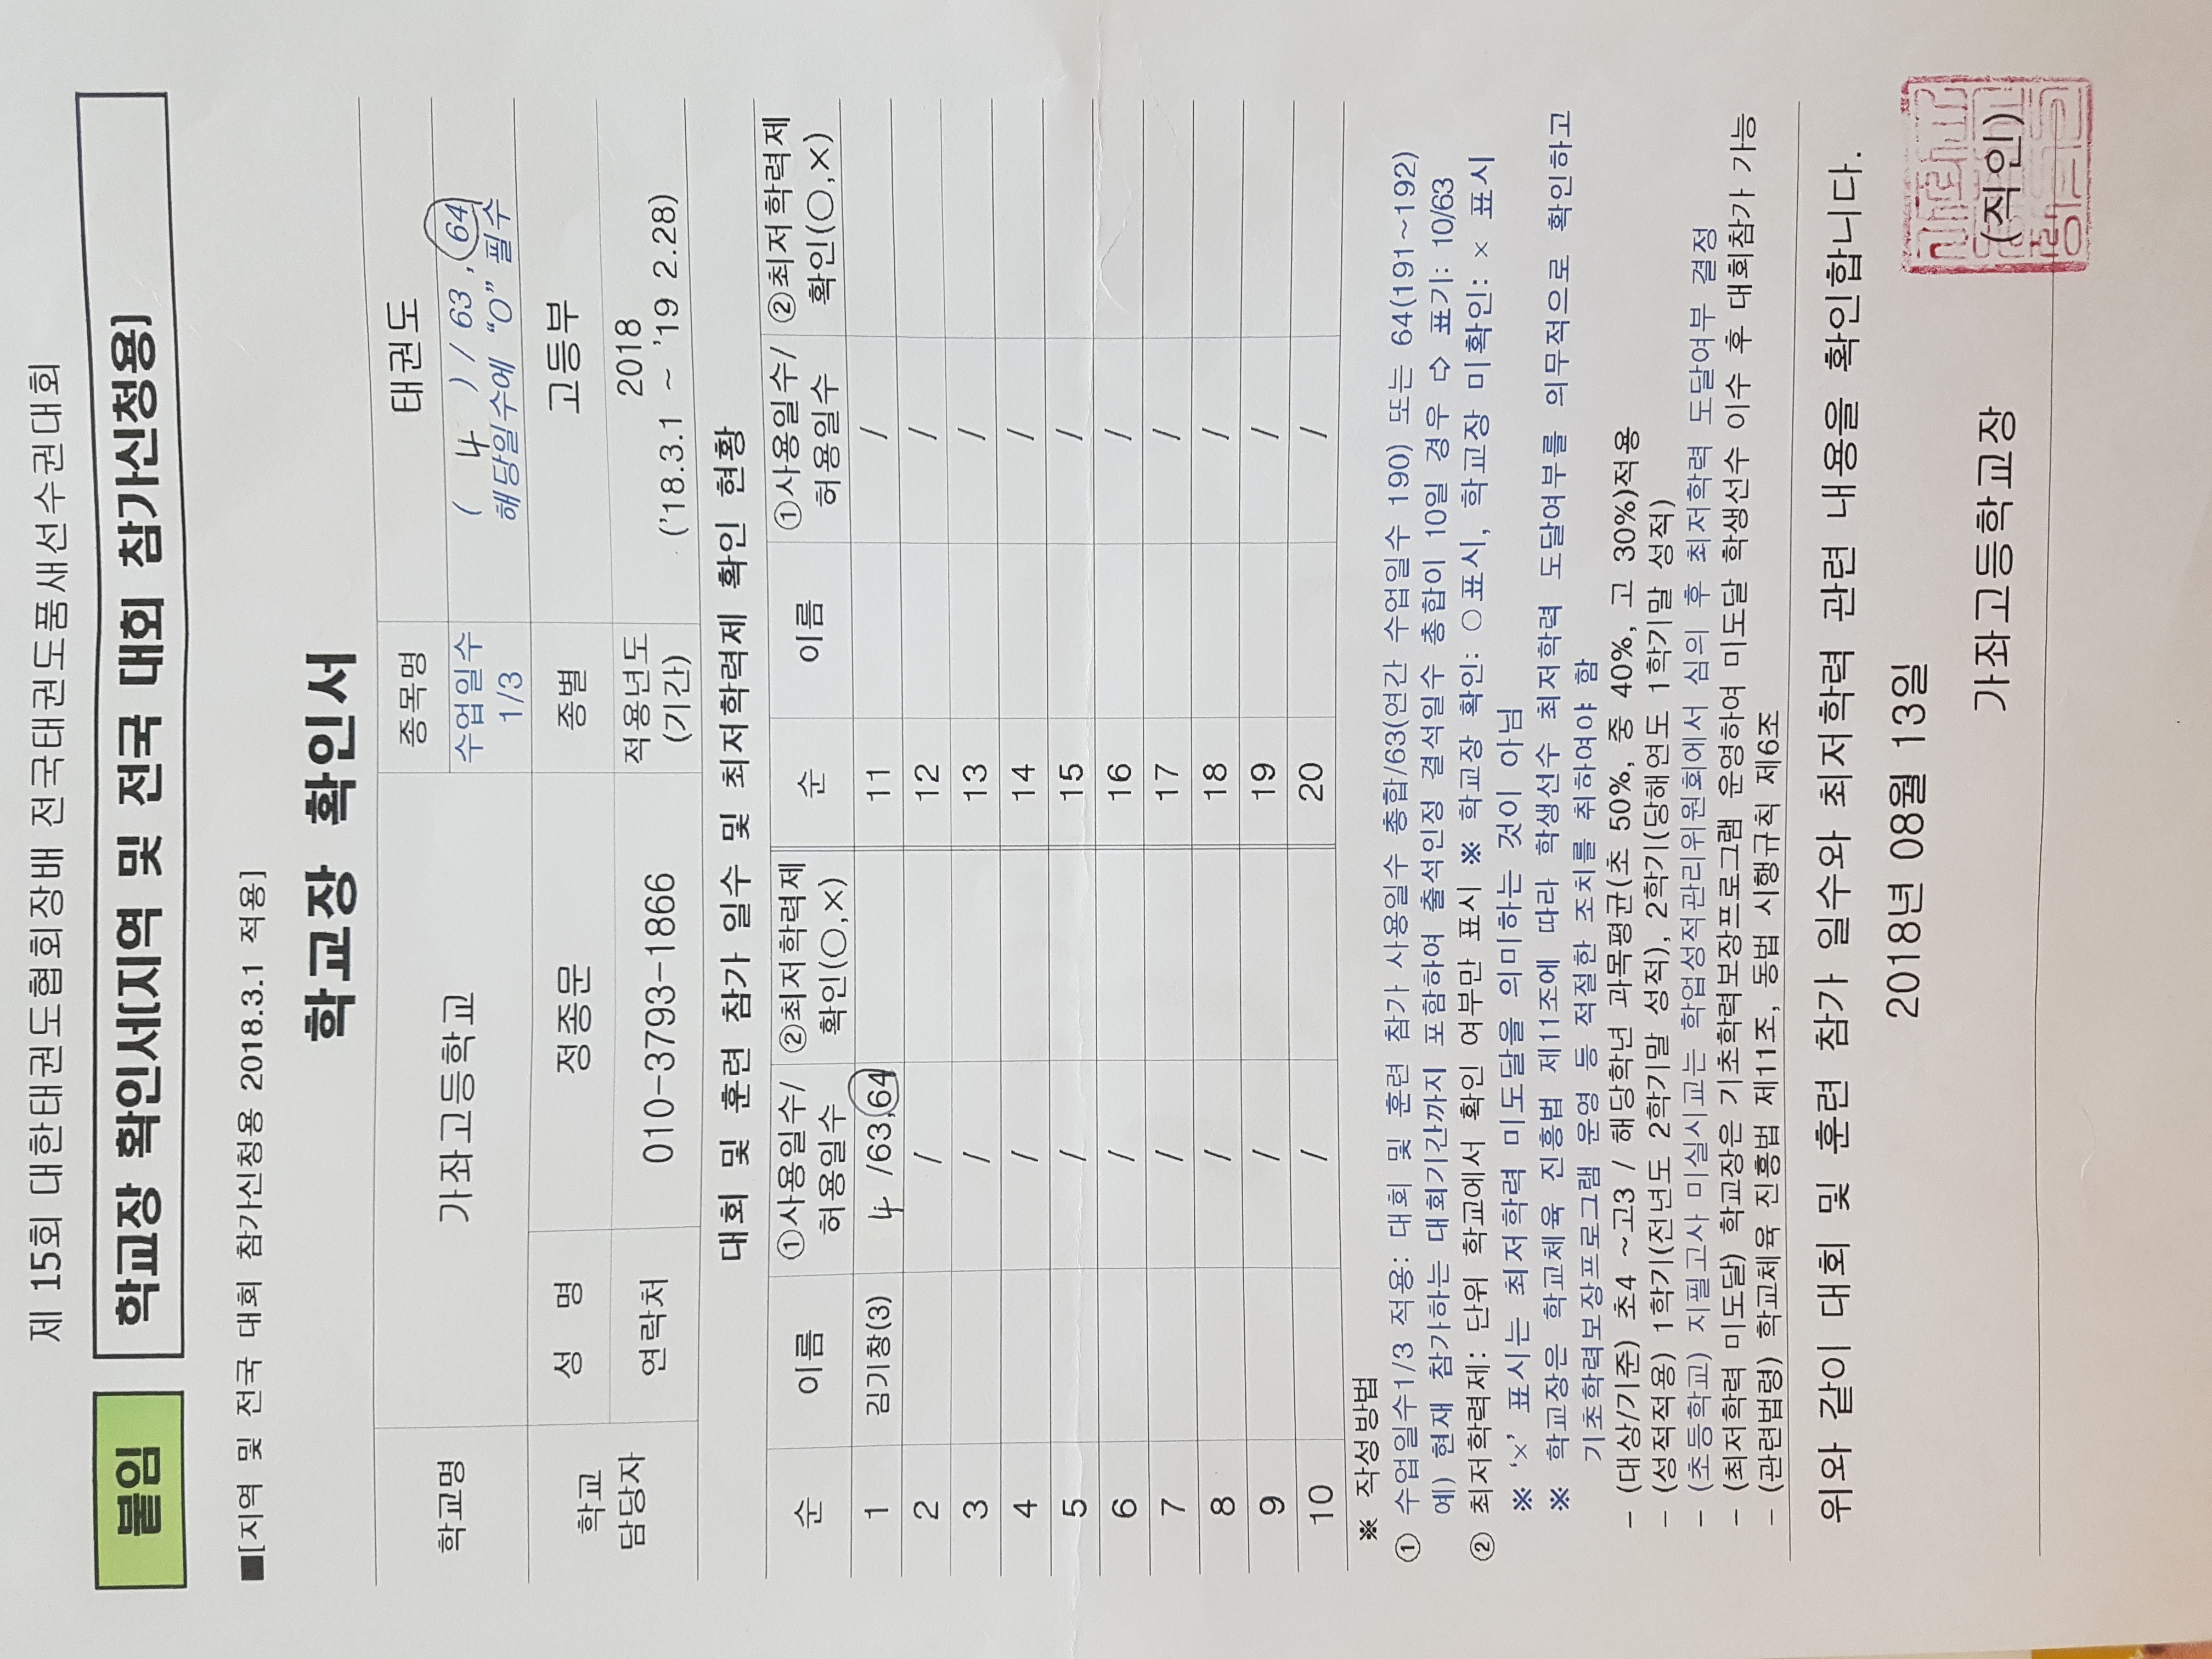 제 15회 대한태권도협회장배 전국태권도품새선수권대회
붙임 학교장 확인서(지역 및 전국 대회 참가신청용)
■[지역 및 전국 대회 참가신청용 2018.3.1 적용]
학교장 확인서
학교명 가좌고등학교 종목명 태권도
수업일수 1/3 ( 4 ) / 63 , 64
해당일수에 “O” 필수
학교 담당자 성 명 정종문 종별 고등부
연락처 010-3793-1866 적용년도 (기간) 2018
('18.3.1 ~ '19 2.28)
대회 및 훈련 참가 일수 및 최저학력제 확인 현황
순 이름 ①사용일수/허용일수 ②최저학력제 확인(○,×) 순 이름 ①사용일수/허용일수 ②최저학력제 확인(○,×)
1 김기창(3) 4 /63,64 11 /
2 / 12 /
3 / 13 /
4 / 14 /
5 / 15 /
6 / 16 /
7 / 17 /
8 / 18 /
9 / 19 /
10 / 20 /
※ 작성방법
① 수업일수1/3 적용: 대회 및 훈련 참가 사용일수 총합/63(연간 수업일수 190) 또는 64(191~192)
예) 현재 참가하는 대회기간까지 포함하여 출석인정 결석일수 총합이 10일 경우 ⇨ 표기: 10/63
② 최저학력제: 단위 학교에서 확인 여부만 표시 ※ 학교장 확인: ○표시, 학교장 미확인: × 표시
※ ‘×’ 표시는 최저학력 미도달을 의미하는 것이 아님
※ 학교장은 학교체육 진흥법 제11조에 따라 학생선수 최저학력 도달여부를 의무적으로 확인하고
기초학력보장프로그램 운영 등 적절한 조치를 취하여야 함
- (대상/기준) 초4 ~고3 / 해당학년 과목평균(초 50%, 중 40%, 고 30%)적용
- (성적적용) 1학기(전년도 2학기말 성적), 2학기(당해연도 1학기말 성적)
- (초등학교) 지필고사 미실시교는 학업성적관리위원회에서 심의 후 최저학력 도달여부 결정
- (최저학력 미도달) 학교장은 기초학력보장프로그램 운영하여 미도달 학생선수 이수 후 대회참가 가능
- (관련법령) 학교체육 진흥법 제11조, 동법 시행규칙 제6조
위와 같이 대회 및 훈련 참가 일수와 최저학력 관련 내용을 확인합니다.
2018년 08월 13일
가좌고등학교장 (직인)